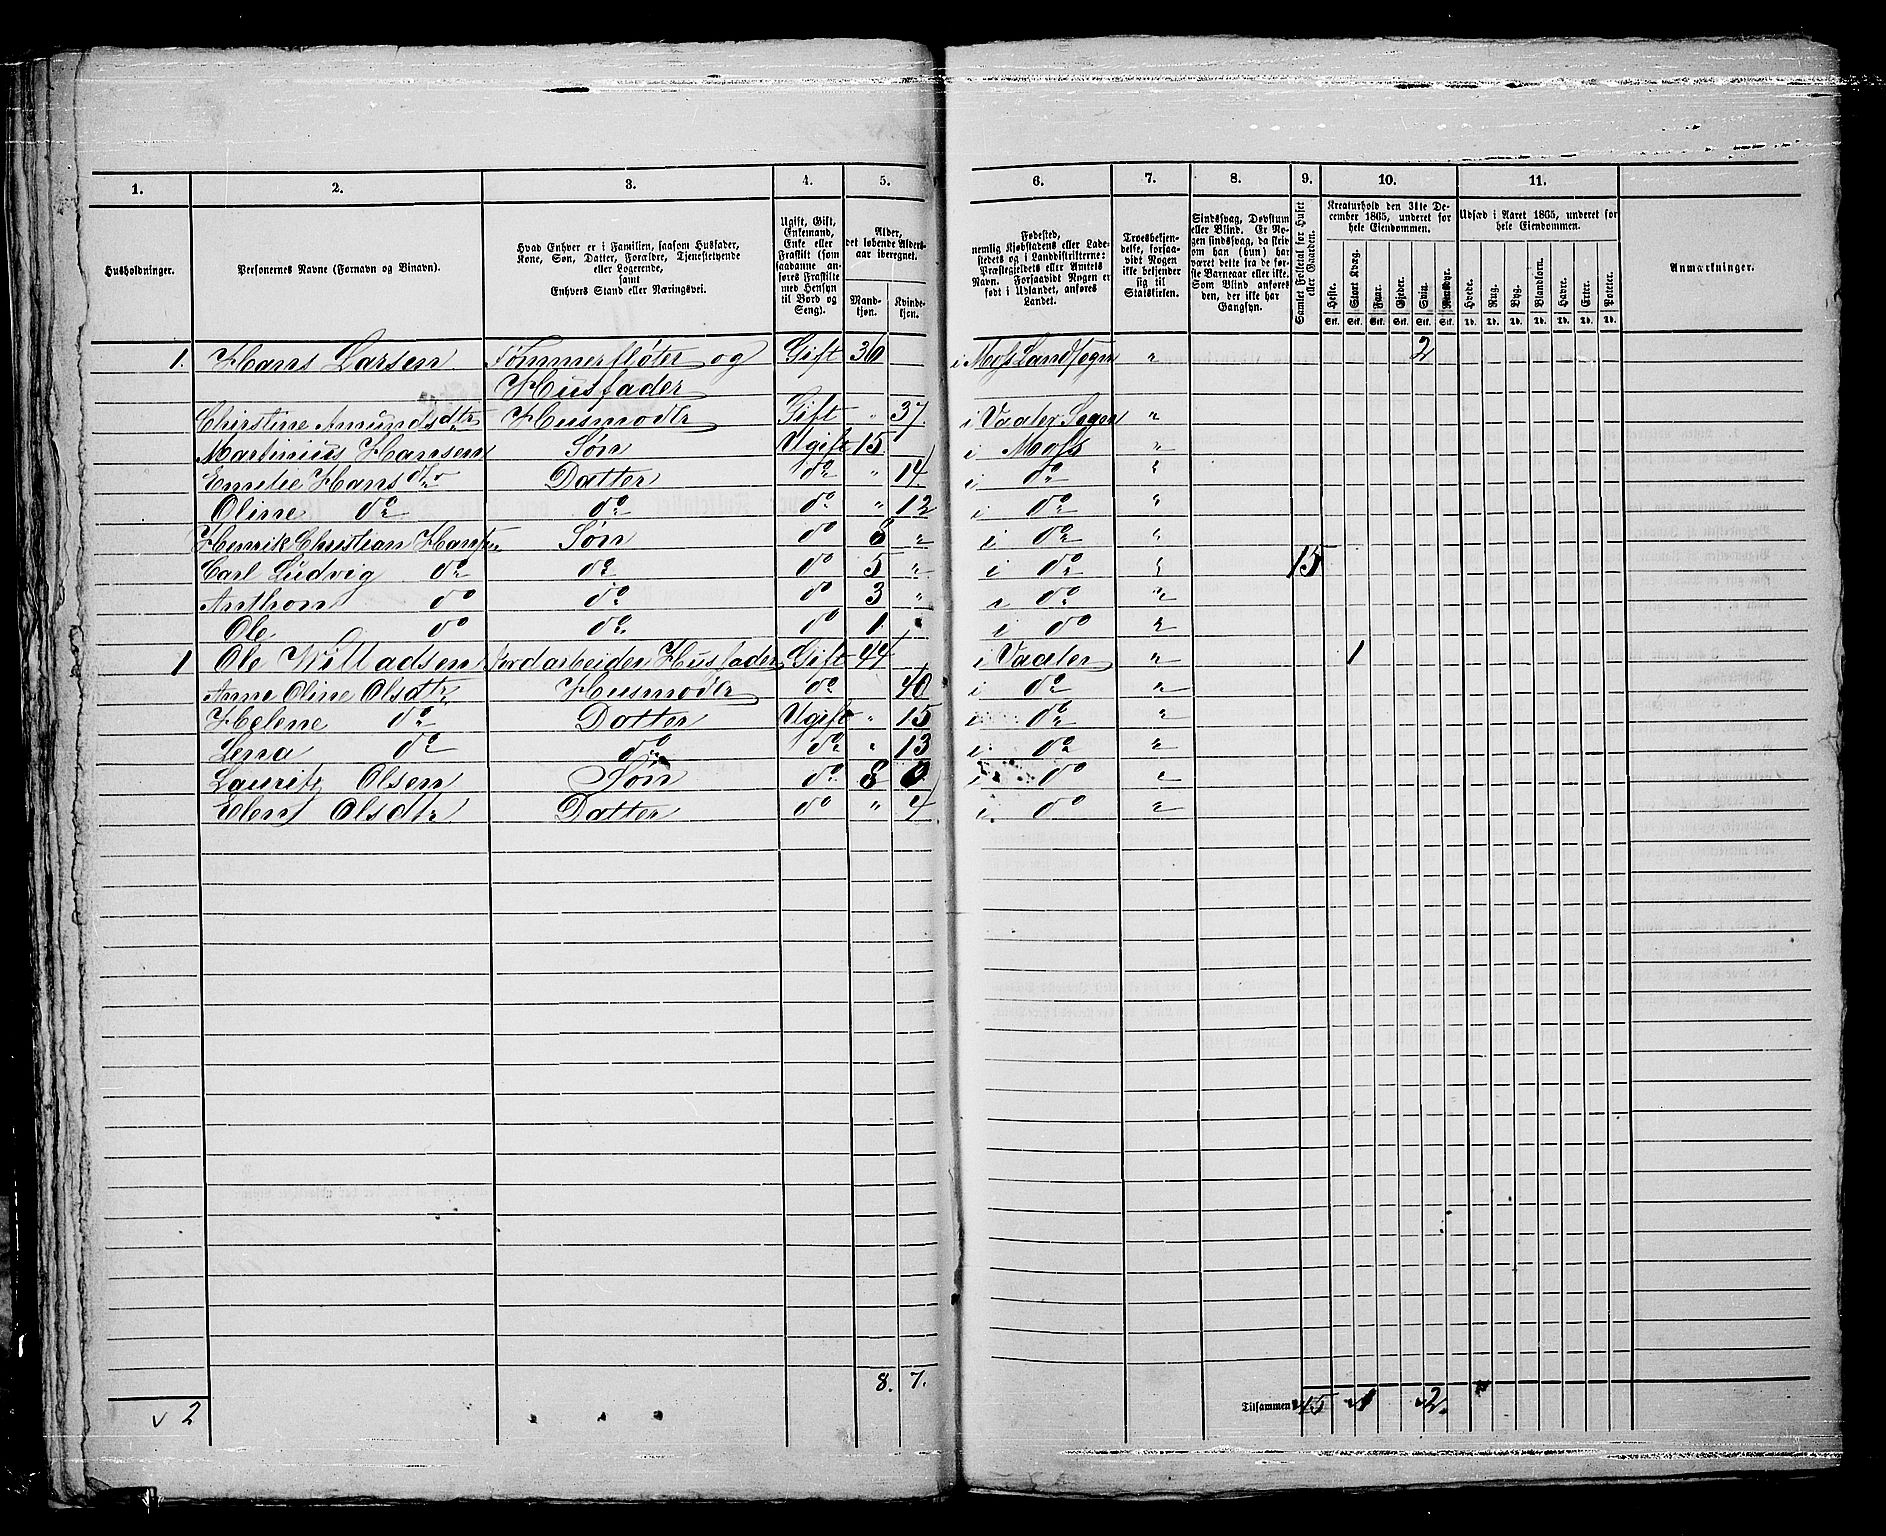 1. 2. 3. 4. 5. 6. 7. 8. 9. 10. 11.
Husholdninger.
Personernes Navne (Fornavn og Binavn).
Hvad Enhver er i Familien, saasom Husfader,
Kone, Søn, Datter, Forældre, Tjenestetyende
eller Logerende,
samt
Enhvers Stand eller Næringsvei.
Ugift, Gift,
Enkemand,
Enke eller
Fraskilt (som
saadanne an-
føres Fraskilte
med Hensyn
til Bord og
Seng).
Alder,
det løbende Alders-
aar iberegnet.
Mand-
kjøn.
Kvinde-
kjøn.
Fødested,
nemlig Kjøbstadens eller Lade-
stedets og i Landdistrikterne:
Præstegjeldets eller Amtets
Navn. Forsaavidt Nogen er
født i Udlandet, anføres
Landet.
Troesbekjen-
delse, forsaa-
vidt Nogen
ikke bekjender
sig til
Statskirken.
Sindssvag, Døvstum
eller Blind. Er No-
gen sindssvag, da skrives
om han (hun) har
været dette fra de før-
ste Barneaar eller ikke.
Som Blind anføres
den, der ikke har
Gangsyn.
Samlet Folketal for Huset
eller Gaarden.
Kreaturhold den 31te De-
cember 1865, underet for
hele Eiendommen.
Heste. Stort Kvæg. Faar. Gjeder. Sviin. Rensdyr.
Stk. Stk. Stk. Stk. Stk. Stk.
Udsæd i Aaret 1865, underet for
hele Eiendommen.
Hvede. Rug. Byg. Blandkorn. Havre. Erter. Poteter.
Td. Td. Td. Td. Td. Td. Td.
Anmærkninger.
1. Hans Larsen Tømmerfløter og Gift 36 i Moss Landsogn " 2
Husfader
Christine Amundsdtr Husmodtr Gift " 37 i Vaaler Sogn "
Martinius Hansen Søn Ugift 15 i Moss "
Emelie Hansdtr Datter do " 14 i do "
Oline do do do " 12 i do "
Henrik Christian Hansen Søn do 8 " i do "
Carl Ludvig do do do 5 " i do " 15
Anthon do do do 3 " i do "
Ole do do do 1 " i do "
1 Ole Willadsen Jordarbeider Husfader Gift 44 i Vaaler " 1
Anne Oline Olsdtr Husmodtr do 40 i do "
Helene do Datter Ugift " 15 i do "
Lena do do do " 13 i do "
Lauritz Olsen Søn do 8 0 i do "
Elen Olsdtr Datter do " 4 i do "
8. 7.
v 2
Tilsammen 15 1 2.